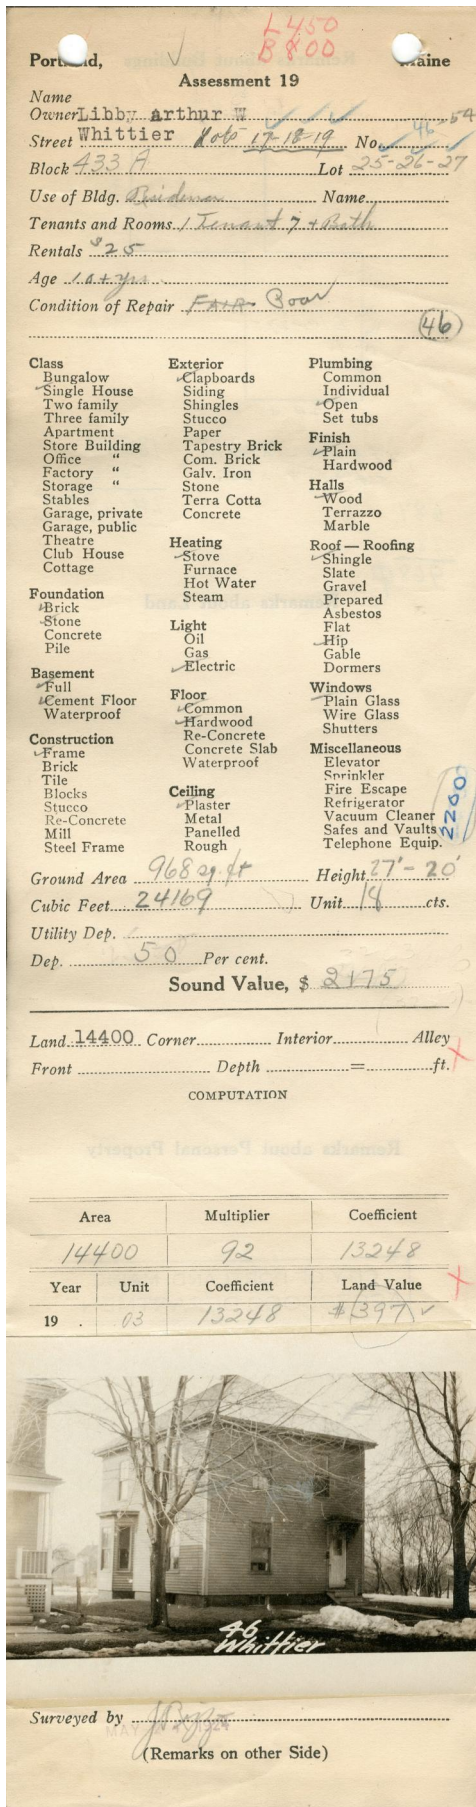 L 450
B 800
Portland, Maine
Assessment 19
Name
Owner Libby Arthur W
Street Whittier Lots 17-18-19 No. 46-54
Block 433 A Lot 25-26-27
Use of Bldg. Residence Name
Tenants and Rooms 1 Tenant 7 + Bath
Rentals $25
Age 10+ yrs
Condition of Repair FAIR Poor
46
Class
Bungalow
Single House
Two family
Three family
Apartment
Store Building
Office "
Factory "
Storage "
Stables
Garage, private
Garage, public
Theatre
Club House
Cottage
Foundation
Brick
Stone
Concrete
Pile
Basement
Full
Cement Floor
Waterproof
Construction
Frame
Brick
Tile
Blocks
Stucco
Re-Concrete
Mill
Steel Frame
Exterior
Clapboards
Siding
Shingles
Stucco
Paper
Tapestry Brick
Com. Brick
Galv. Iron
Stone
Terra Cotta
Concrete
Heating
Stove
Furnace
Hot Water
Steam
Light
Oil
Gas
Electric
Floor
Common
Hardwood
Re-Concrete
Concrete Slab
Waterproof
Ceiling
Plaster
Metal
Panelled
Rough
Plumbing
Common
Individual
Open
Set tubs
Finish
Plain
Hardwood
Halls
Wood
Terrazzo
Marble
Roof — Roofing
Shingle
Slate
Gravel
Prepared
Asbestos
Flat
Hip
Gable
Dormers
Windows
Plain Glass
Wire Glass
Shutters
Miscellaneous
Elevator
Sprinkler
Fire Escape
Refrigerator
Vacuum Cleaner
Safes and Vaults
Telephone Equip.
2200
Ground Area 968 sq. ft Height 27' - 20'
Cubic Feet 24169 Unit 18 cts.
Utility Dep.
Dep. 50 Per cent.
Sound Value, $ 2175
Land 14400 Corner Interior Alley
Front Depth = ft.
COMPUTATION
Area Multiplier Coefficient
14400 92 13248
Year Unit Coefficient Land Value
19 . 03 13248 $397
46
Whittier
Surveyed by
MAY 1924
(Remarks on other Side)